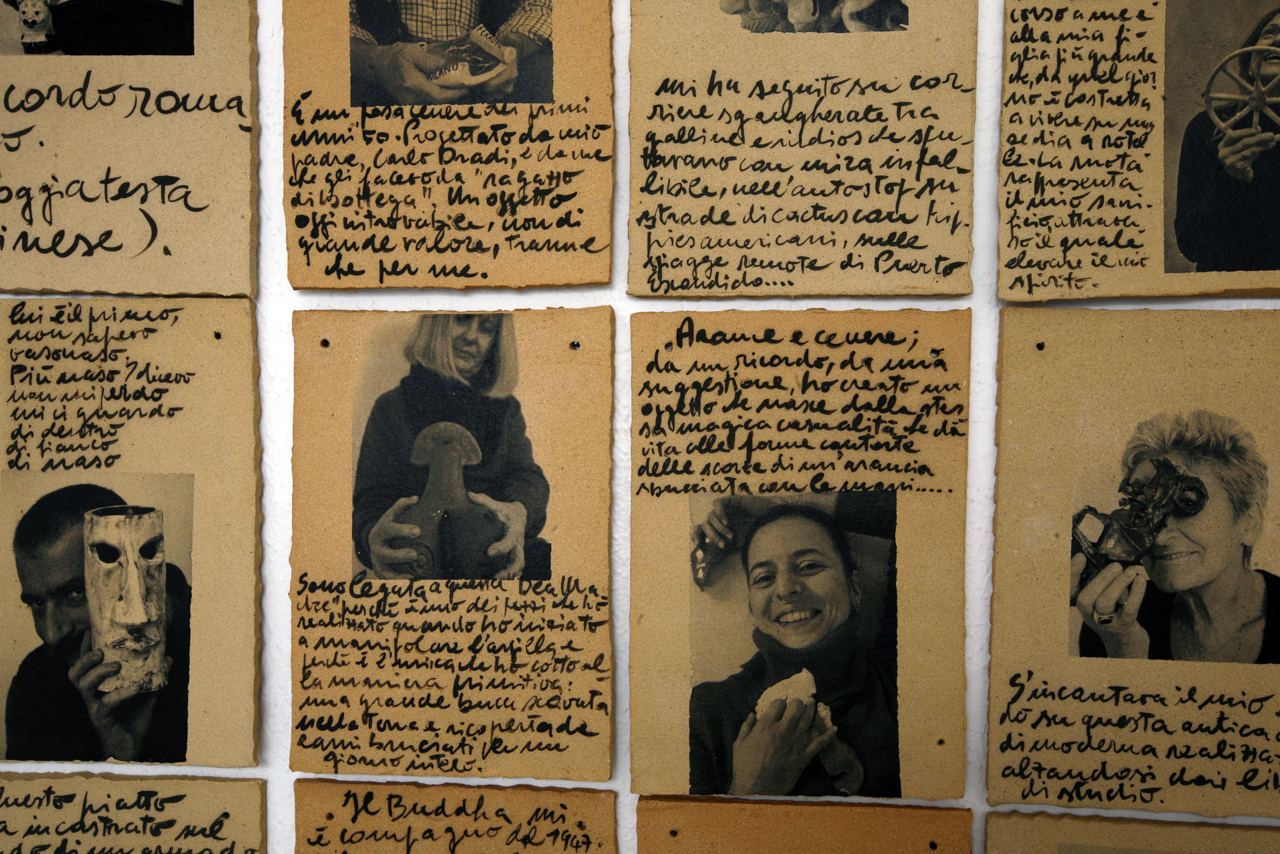 cordo roma
o.
oggia testa
inese).
MILANO
È un posacenere dei primi
anni 60. Progettato da mio
padre, Carlo Bradi, e da me
che gli facevo da "ragazzo
di bottega". Un oggetto
oggi introvabile, non di
grande valore, tranne
che per me.
mi ha seguito su cor-
riere sgangherate tra
galline e indios che spu-
tavano con mira infal-
libile, nell'autostop su
strade di cactus con hip-
pies americani, sulle
spiagge remote di Puerto
Escondido....
corso a me e
alla mia fi-
glia più grande
che, da quel gior
no è costretta
a vivere su una
sedia a rotel
le. La ruota
rappresenta
il mio sacri-
ficio attraver
so il quale
elevare il mio
spirito.
lui è il primo,
non sapevo
vasonaso.
Più naso? dicevo
non mi perdo
mi ci guardo
di dentro
di fianco
di naso
Sono legata a questa "Dea Ma-
dre" perché è uno dei pezzi che ho
realizzato quando ho iniziato
a manipolare l'argilla e
perché è l'unica che ho cotto al
la maniera primitiva:
una grande buca scavata
nella terra e ricoperta da
rami bruciati per un
giorno intero.
Arame e cenere;
da un ricordo, da una
suggestione, ho creato un
oggetto che nasce dalla stes
sa magica casualità che dà
vita alle forme contorte
delle scorze di un'arancia
sbucciata con le mani.....
S'incantava il mio
do su questa antica
di moderna realizza
alzandosi dai li
di studio.
Questo piatto
a incastrato nel
do di un armado
Il Buddha mi
è compagno dal 1947.